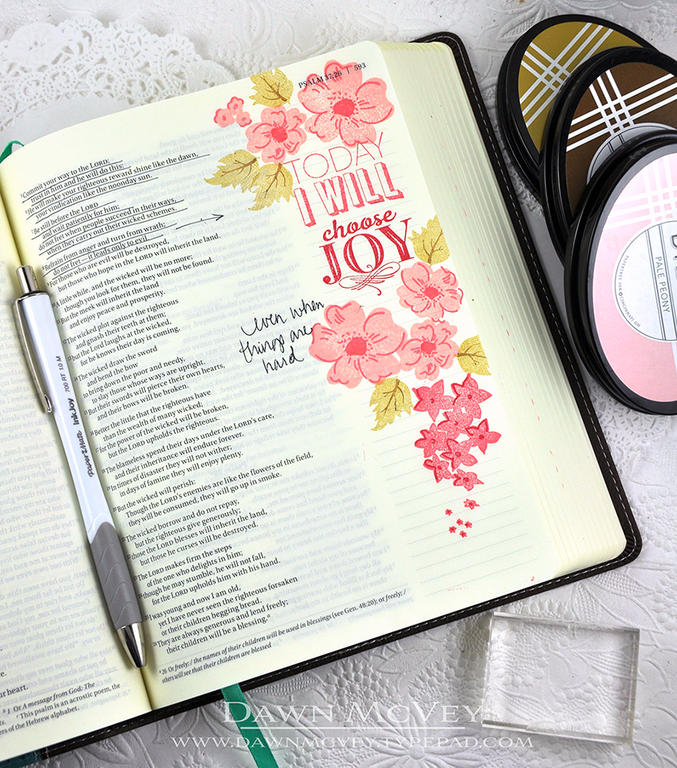 PSALM 37:26 | 593
TODAY
I WILL
choose
JOY
even when
things are
hard
⁵Commit your way to the LORD;
trust in him and he will do this:
⁶He will make your righteous reward shine like the dawn,
your vindication like the noonday sun.
⁷Be still before the LORD
and wait patiently for him;
do not fret when people succeed in their ways,
when they carry out their wicked schemes.
⁸Refrain from anger and turn from wrath;
do not fret—it leads only to evil.
⁹For those who are evil will be destroyed,
but those who hope in the LORD will inherit the land.
¹⁰A little while, and the wicked will be no more;
though you look for them, they will not be found.
¹¹But the meek will inherit the land
and enjoy peace and prosperity.
¹²The wicked plot against the righteous
and gnash their teeth at them;
¹³but the Lord laughs at the wicked,
for he knows their day is coming.
¹⁴The wicked draw the sword
and bend the bow
to bring down the poor and needy,
to slay those whose ways are upright.
¹⁵But their swords will pierce their own hearts,
and their bows will be broken.
¹⁶Better the little that the righteous have
than the wealth of many wicked;
¹⁷for the power of the wicked will be broken,
but the LORD upholds the righteous.
¹⁸The blameless spend their days under the LORD's care,
and their inheritance will endure forever.
¹⁹In times of disaster they will not wither;
in days of famine they will enjoy plenty.
²⁰But the wicked will perish:
Though the LORD's enemies are like the flowers of the field,
they will be consumed, they will go up in smoke.
²¹The wicked borrow and do not repay,
but the righteous give generously;
²²those the LORD blesses will inherit the land,
but those he curses will be destroyed.
²³The LORD makes firm the steps
of the one who delights in him;
²⁴though he may stumble, he will not fall,
for the LORD upholds him with his hand.
²⁵I was young and now I am old,
yet I have never seen the righteous forsaken
or their children begging bread.
²⁶They are always generous and lend freely;
their children will be a blessing.ᵃ
ᵃ 26 Or freely; / the names of their children will be used in blessings (see Gen. 48:20); or freely; /
others will see that their children are blessed
r heart.
1 Or A message from God: The
This psalm is an acrostic poem, the
ers of the Hebrew alphabet.
PAPER MATE InkJoy 700 RT 1.0 M
PALE PEONY
DAWN MCVEY
WWW.DAWNMCVEY.TYPEPAD.COM